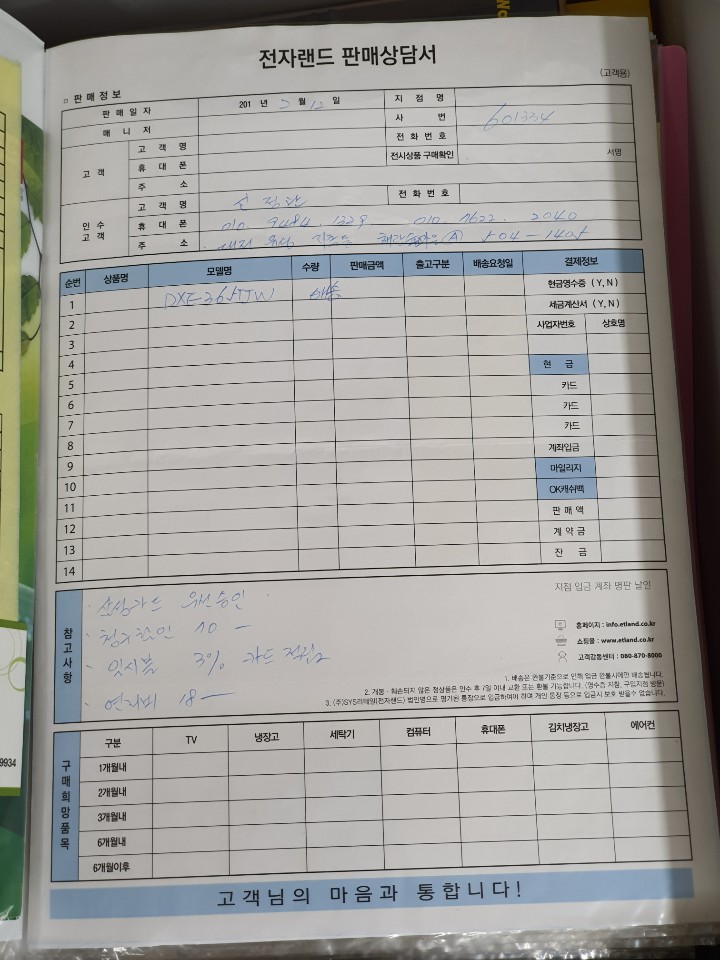 전자랜드 판매상담서
(고객용)
판매정보
판매일자 201 년 2 월 12 일 지점명
매니저 사번 601334
전화번호
고객 고객명 전시상품 구매확인 서명
휴대폰
주소
인수고객 고객명 전화번호
휴대폰 010 9484 1329 010 7622 2040
주소 504 - 1405
순번 상품명 모델명 수량 판매금액 출고구분 배송요청일 결제정보
1 현금영수증 (Y, N)
2 세금계산서 (Y, N)
3 사업자번호 상호명
4
5 현금
6 카드
7 카드
8 카드
9 계좌입금
10 마일리지
11 OK캐쉬백
12 판매액
13 계약금
14 잔금
참고사항
지점 입금 계좌 명판 날인
· 삼성카드 우선승인
· 청구할인 10 -
· 일시불 3% 카드 적립
홈페이지 : info.etland.co.kr
쇼핑몰 : www.etland.co.kr
고객감동센터 : 080-870-8000
1. 배송은 완불기준으로 인해 입금 완불시에만 배송됩니다.
2. 개봉 · 훼손되지 않은 정상품은 인수 후 7일 이내 교환 또는 환불 가능합니다. (영수증 지참, 구입지점 방문)
3. (주)SYS리테일(전자랜드) 법인명으로 명기된 통장으로 입금하여야 하며 개인 통장 등으로 입금시 보호 받을수 없습니다.
구매희망품목
구분 TV 냉장고 세탁기 컴퓨터 휴대폰 김치냉장고 에어컨
1개월내
2개월내
3개월내
6개월내
6개월이후
고객님의 마음과 통합니다!
9934